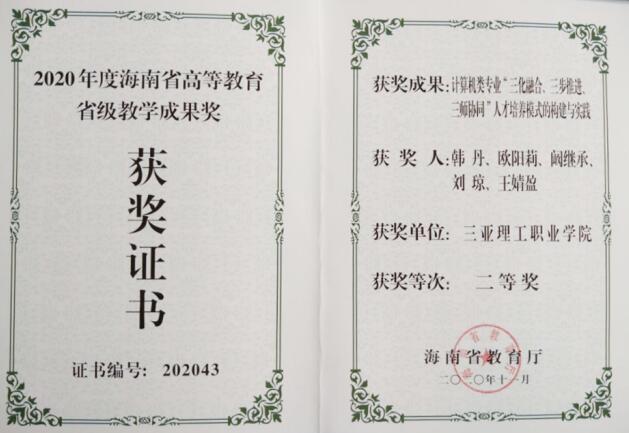 2020年度海南省高等教育
省级教学成果奖
获奖证书
证书编号：202043
获奖成果：计算机类专业“三化融合、三步推进、
三师协同”人才培养模式的构建与实践
获奖人：韩丹、欧阳莉、阚继承、
刘琼、王婧盈
获奖单位：三亚理工职业学院
获奖等次：二等奖
海南省教育厅
二〇二〇年十一月
海南省教育厅